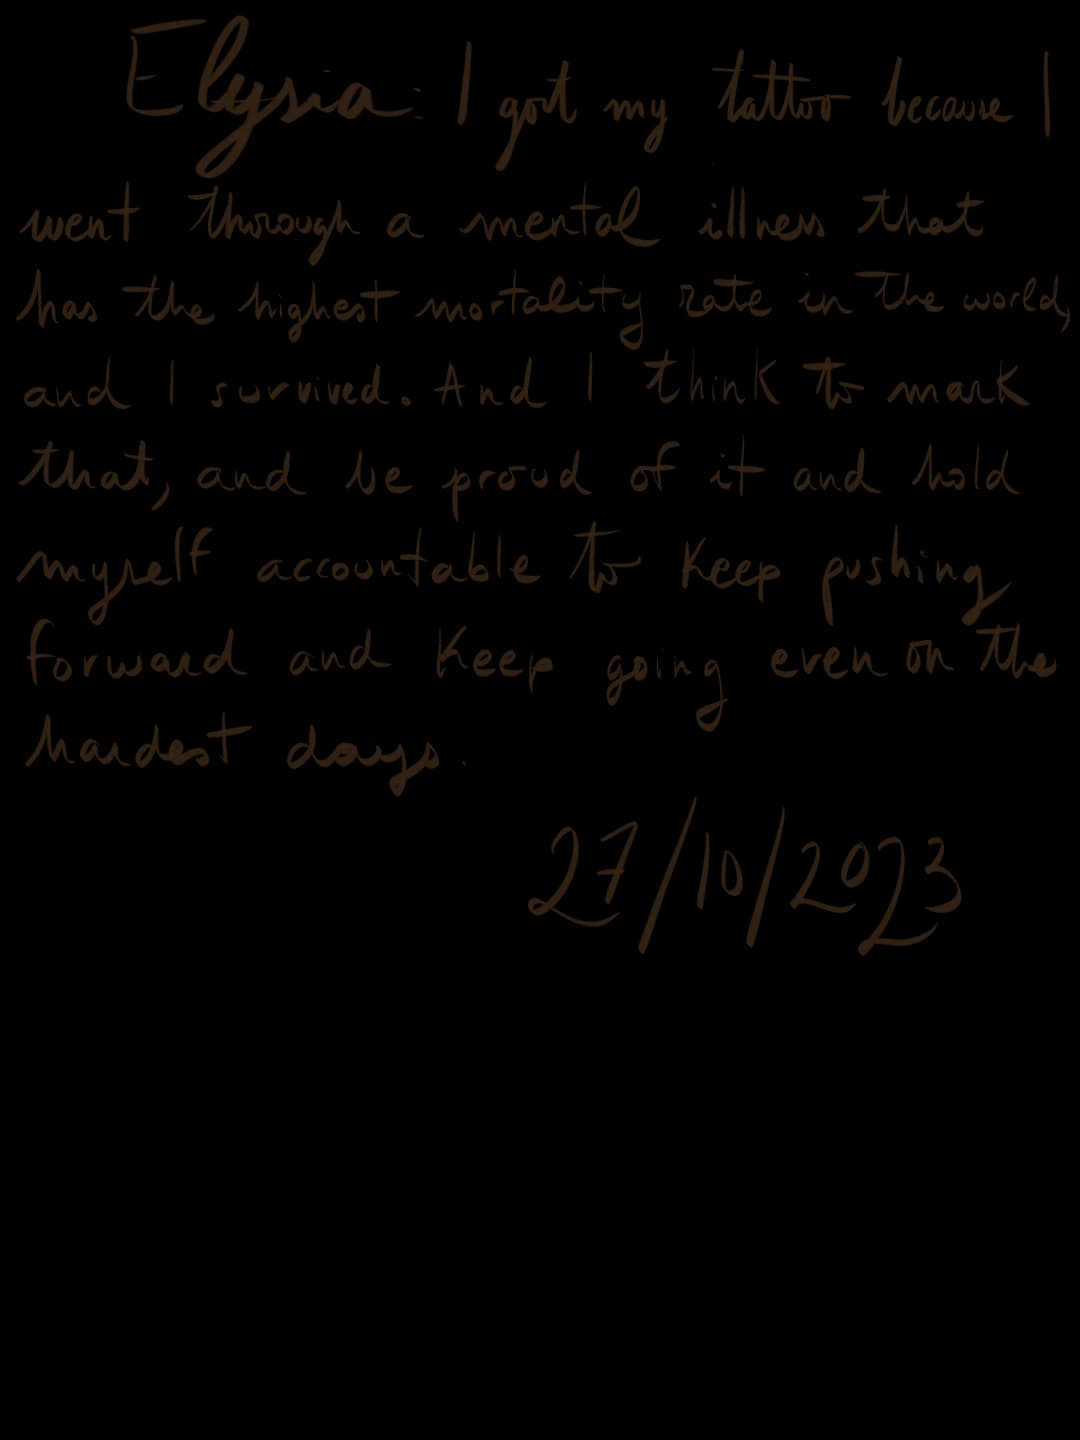 Elysia: I got my tattoo because I
went through a mental illness that
has the highest mortality rate in the world,
and I survived. And I think to mark
that, and be proud of it and hold
myself accountable to keep pushing
forward and keep going even on the
hardest days.
27/10/2023